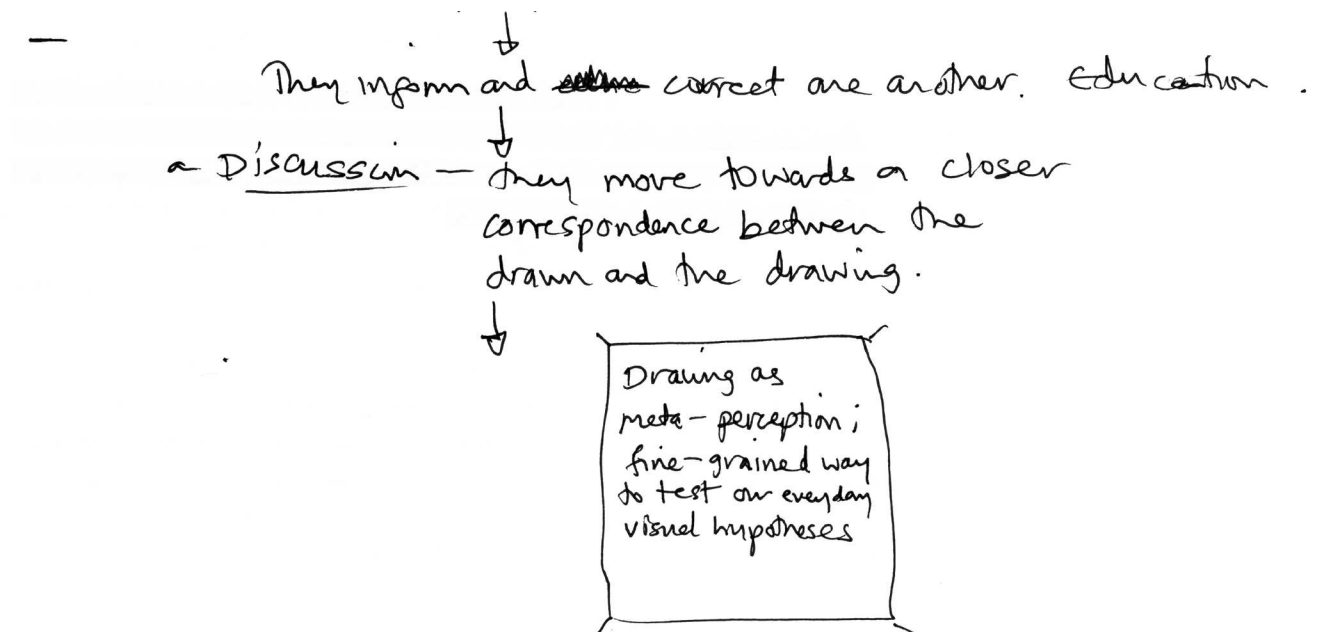 They inform and correct one another. Education.
a Discussion - they move towards a closer
correspondence between the
drawn and the drawing.
Drawing as
meta-perception;
fine-grained way
to test our everyday
visual hypotheses